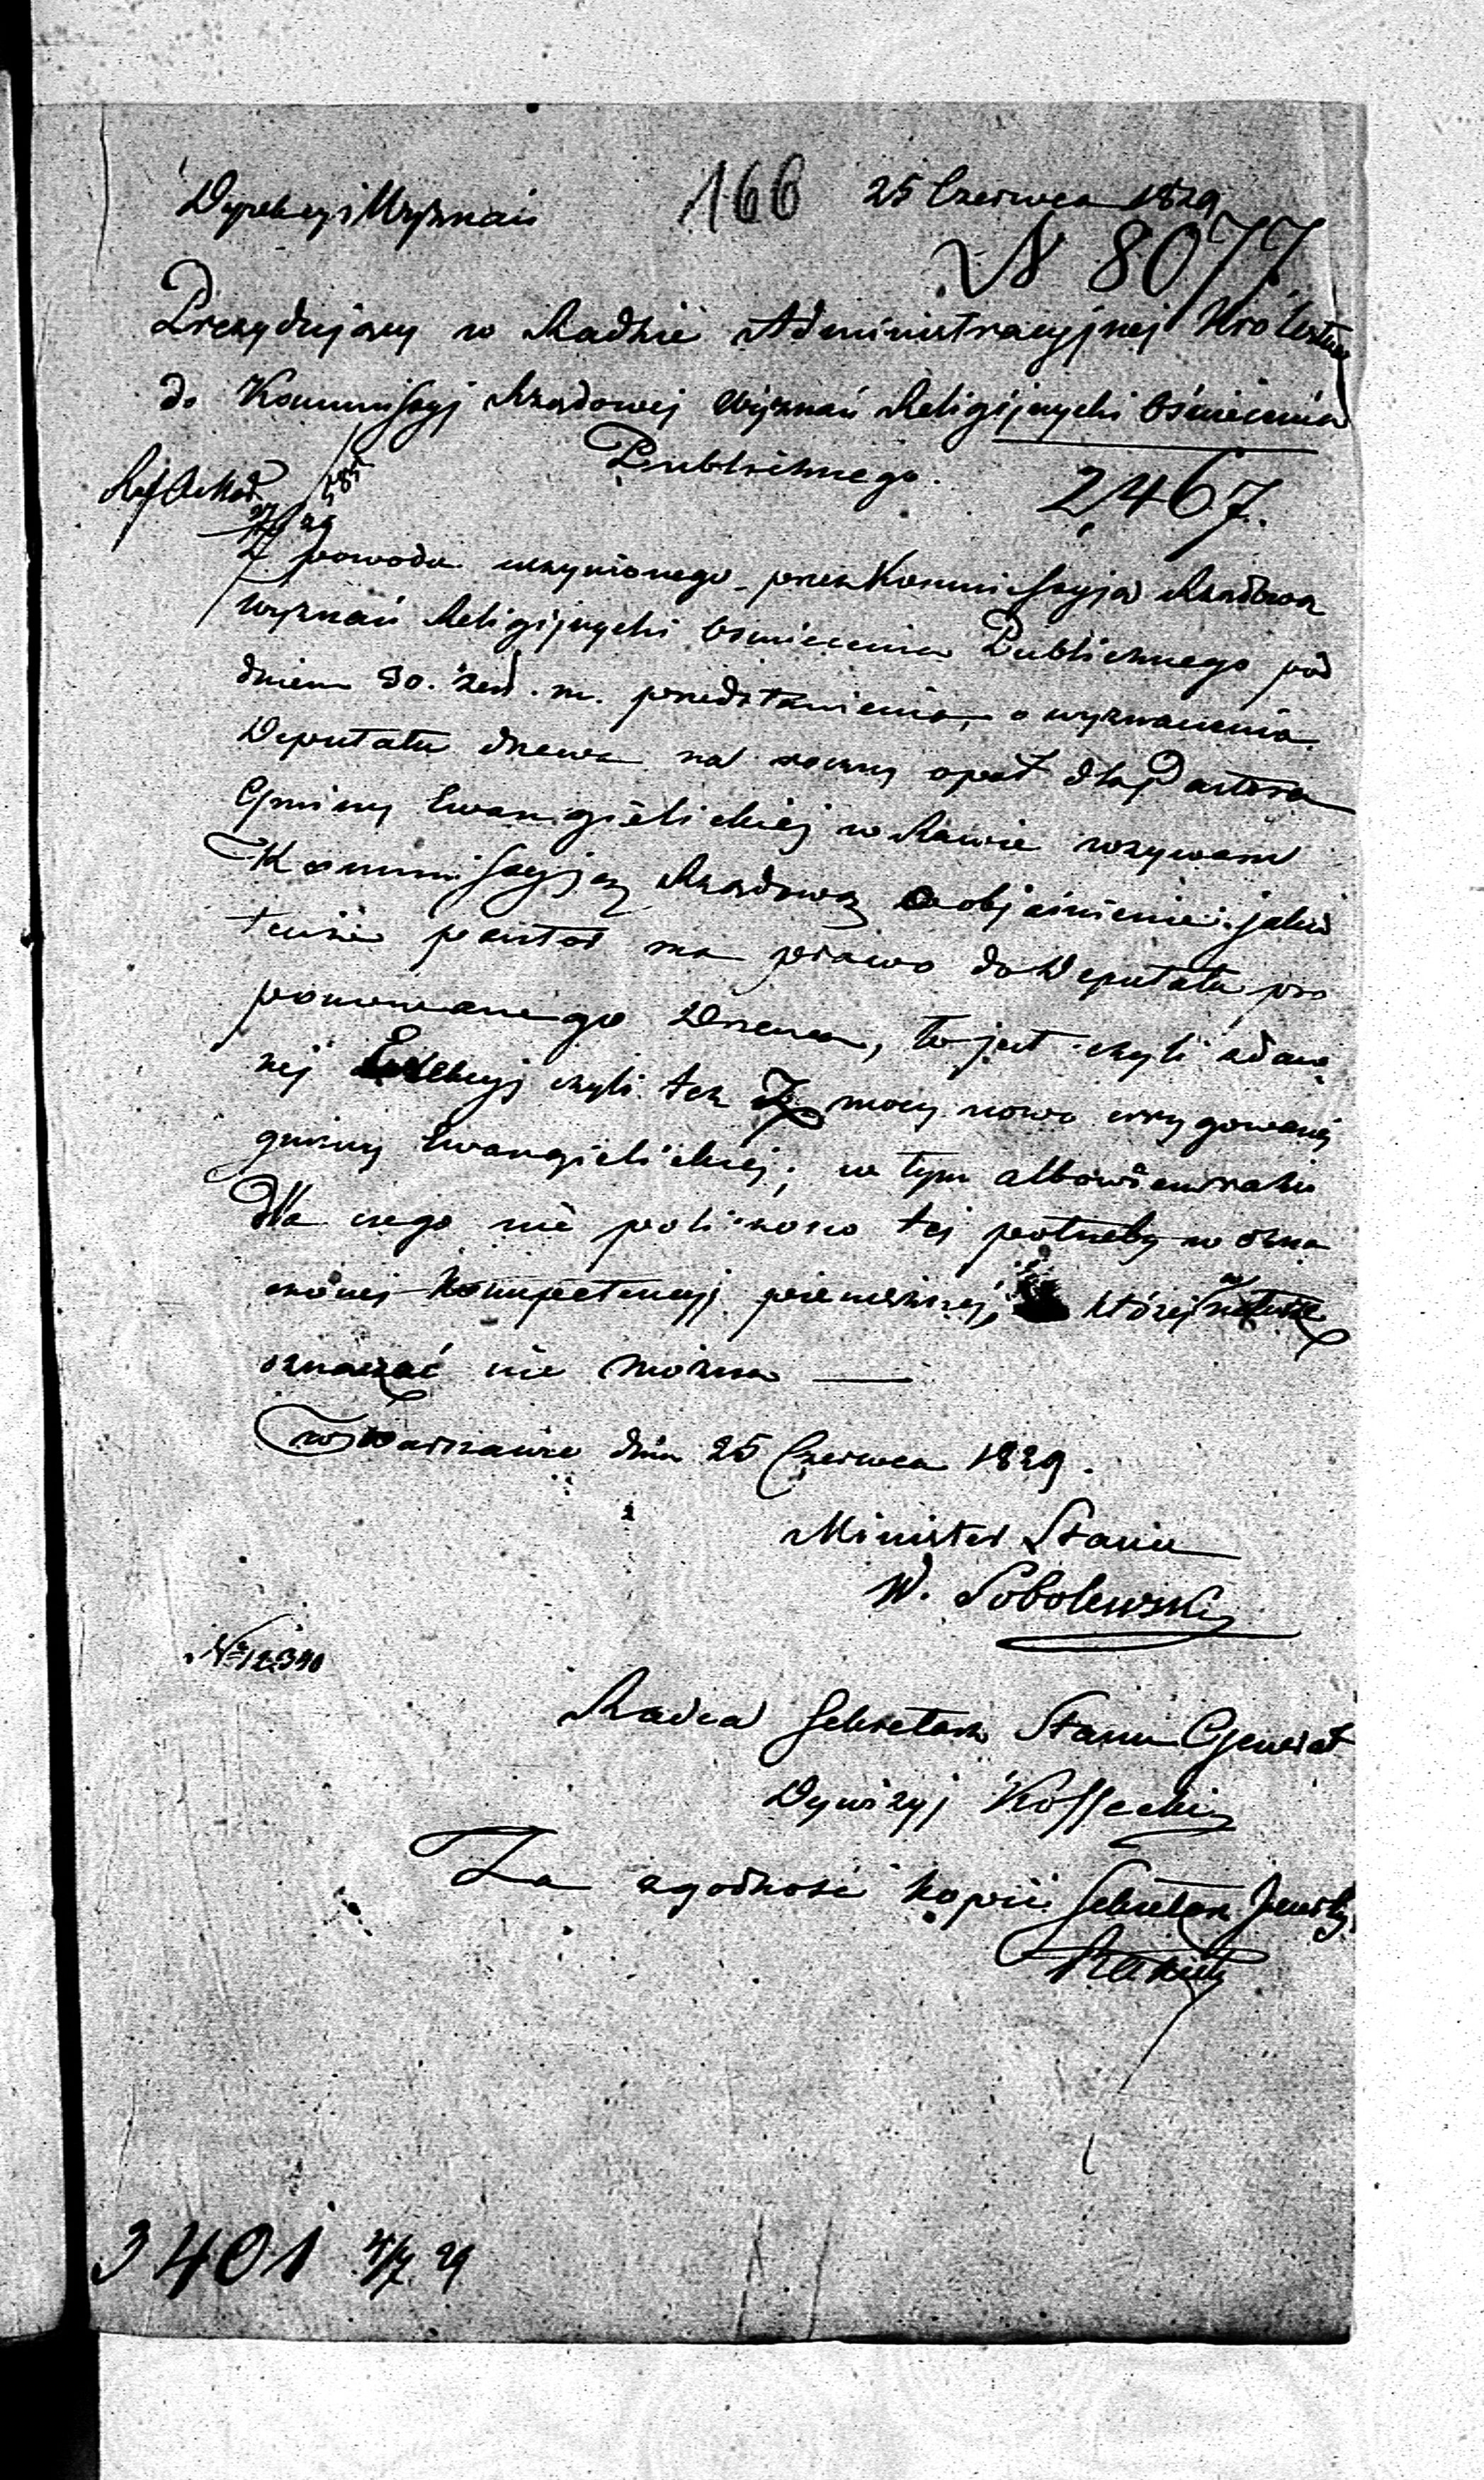 Dyrekcyi Wyznań 166 25 Czerwca 1829
N 8077.
Prezydujący w Radzie Administracyjnej Królestwa
do Kommissyj Rządowej Wyznań Religijnych i Oświecenia
Publicznego. 2467.
Z powodu uczynionego przez Kommissyją Rządową
Wyznań Religijnych i Oświecenia Publicznego pod
dniem 30. zesł. m. przedstawienia, o wyznaczenia
Deputatu drzewa na roczny opał dla Pastora
Gminy Ewangielickiej w Rawie wzywam
Kommissyją Rządową o objaśnienie: jakie
tenże pastor ma prawo do Deputatu pro
ponowanego Drzewa, to jest czyli z dawn
nej Erekcyj czyli też z mocy nowo erygowanej
gminy Ewangielickiej; w tym albowiem razie
dla czego nie policzono tej potrzeby w ozna
czonej kompetencyj pieniężnej, której w naturze
oznaczać nie można —
w Warszawie dnia 25 Czerwca 1829.
Minister Stanu
W. Sobolewski
Nro 12340
Radca Sekretarz Stanu Generał
Dywizyj Kossecki
Za zgodność kopii Sekretarz Jeneralny
3401 4/7 29